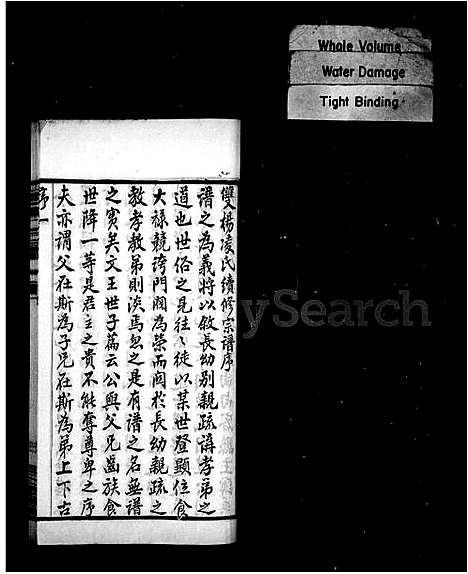 Whole Volume
Water Damage
Tight Binding
雙楊凌氏續修宗譜序
譜之為義將以敘長幼別親疏講孝弟之
道也世俗之見往々徒以某世登顯位食
大祿競誇門閥為榮而闊於長幼親疏之
教孝教弟則淡焉忽之是有譜之名無譜
之實矣文王世子篇云公與父兄齒族食
世降一等是君主之貴不能奪尊卑之序
夫亦謂父在斯為子兄在斯為弟上下古
序一
MySearch